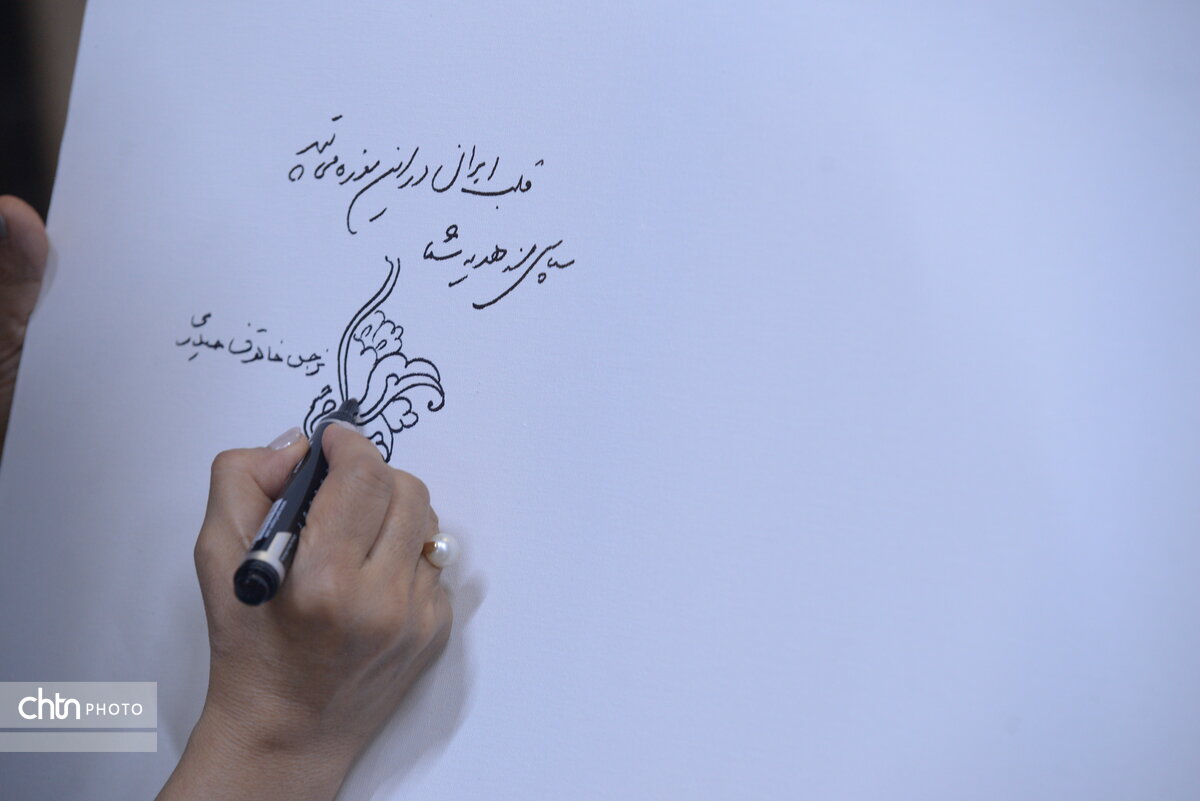 قلب ایران در این موزه می تپد
سپاس من هدیه شما
نرجس خاتون حیدری
chtn PHOTO